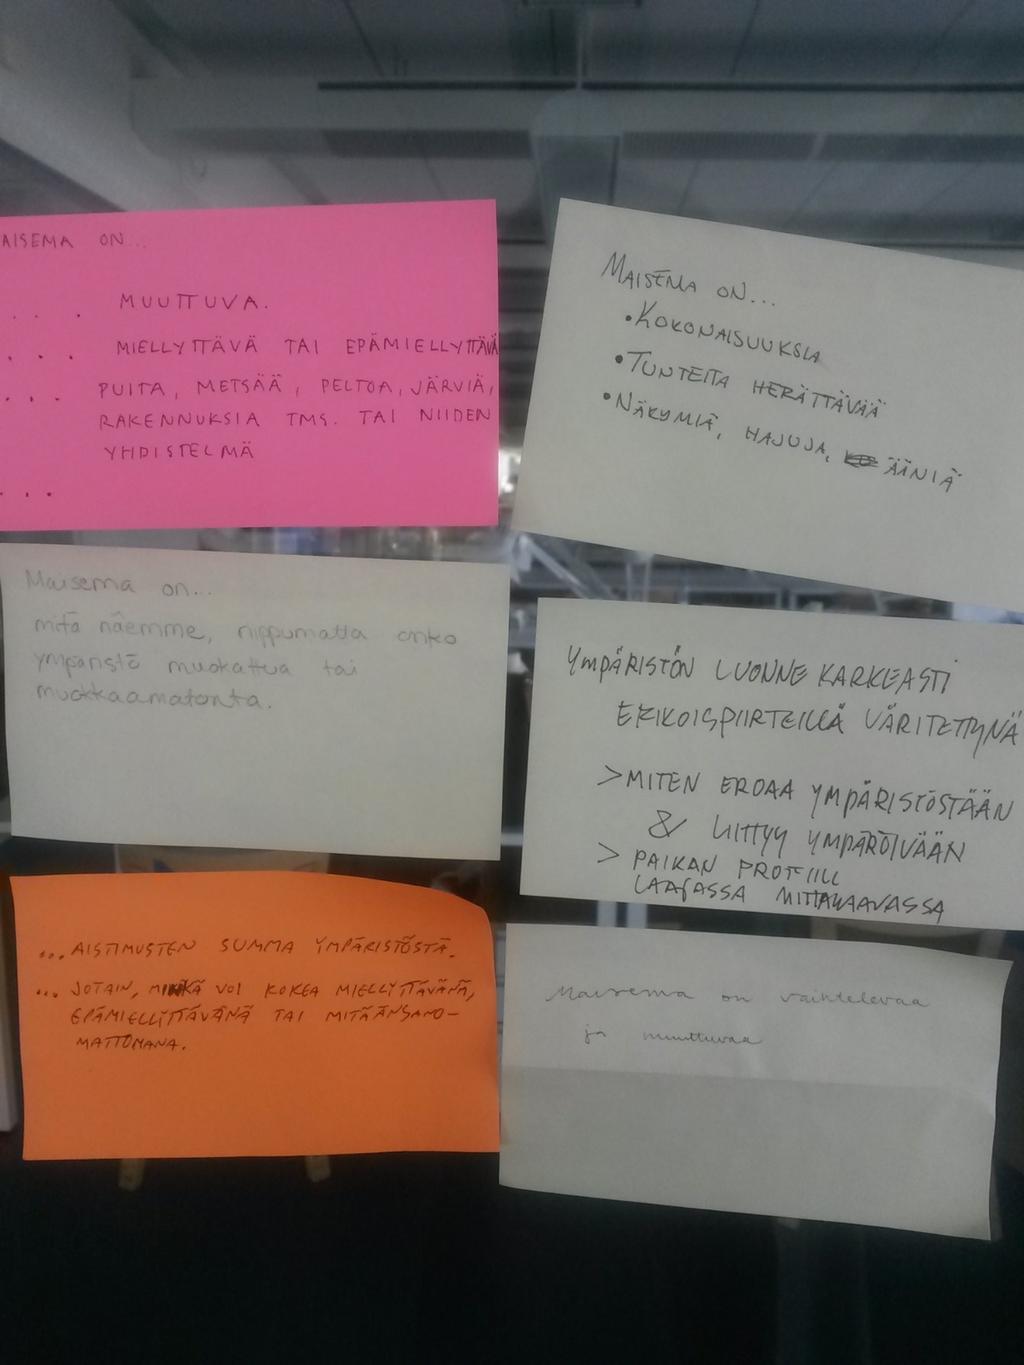 AISEMA ON...
... MUUTTUVA.
... MIELLYTTÄVÄ TAI EPÄMIELLYTTÄVÄ
... PUITA, METSÄÄ, PELTOA, JÄRVIÄ,
RAKENNUKSIA TMS. TAI NIIDEN
YHDISTELMÄ
...
MAISEMA ON...
•KOKONAISUUKSIA
•TUNTEITA HERÄTTÄVÄÄ
•NÄKYMIÄ, HAJUJA, ÄÄNIÄ
Maisema on...
mitä näemme, riippumatta onko
ympäristö muokattua tai
muokkaamatonta.
YMPÄRISTÖN LUONNE KARKEASTI
ERIKOISPIIRTEILLÄ VÄRITETTYNÄ
>MITEN EROAA YMPÄRISTÖSTÄÄN
& LIITTYY YMPÄRÖIVÄÄN
> PAIKAN PROFIILI
LAAJASSA MITTAKAAVASSA
...AISTIMUSTEN SUMMA YMPÄRISTÖSTÄ.
... JOTAIN, MINKÄ VOI KOKEA MIELLYTTÄVÄNÄ,
EPÄMIELLYTTÄVÄNÄ TAI MITÄÄNSANO-
MATTOMANA.
Maisema on vaihtelevaa
ja muuttuvaa